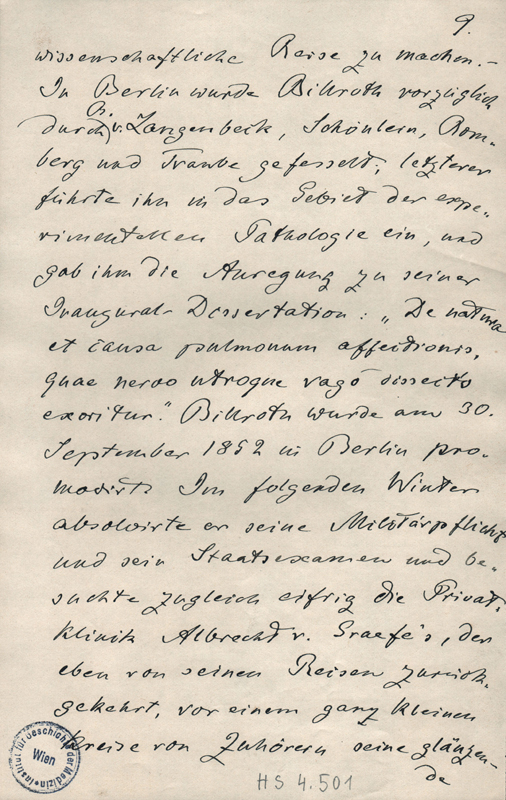 9.
wissenschaftliche Reise zu machen. –
In Berlin wurde Billroth vorzüglich
durch B. v. Langenbeck, Schönlein, Rom-
berg und Traube gefesselt; letzterer
führte ihn in das Gebiet der expe-
rimentellen Pathologie ein, und
gab ihm die Anregung zu seiner
Inaugural-Dissertation: „De natura
et causa pulmonum affectionis,
quae nervo utroque vago dissecto
exoritur." Billroth wurde am 30.
September 1852 in Berlin pro-
movirt. Im folgenden Winter
absolvirte er seine Militärpflicht
und sein Staatsexamen und be-
suchte zugleich eifrig die Privat-
klinik Albrecht v. Graefe's, der
eben von seinen Reisen zurück-
gekehrt, vor einem ganz kleinen
Kreise von Zuhörern seine glänzen-
de
Institut für Geschichte der Medizin
Wien
HS 4.501